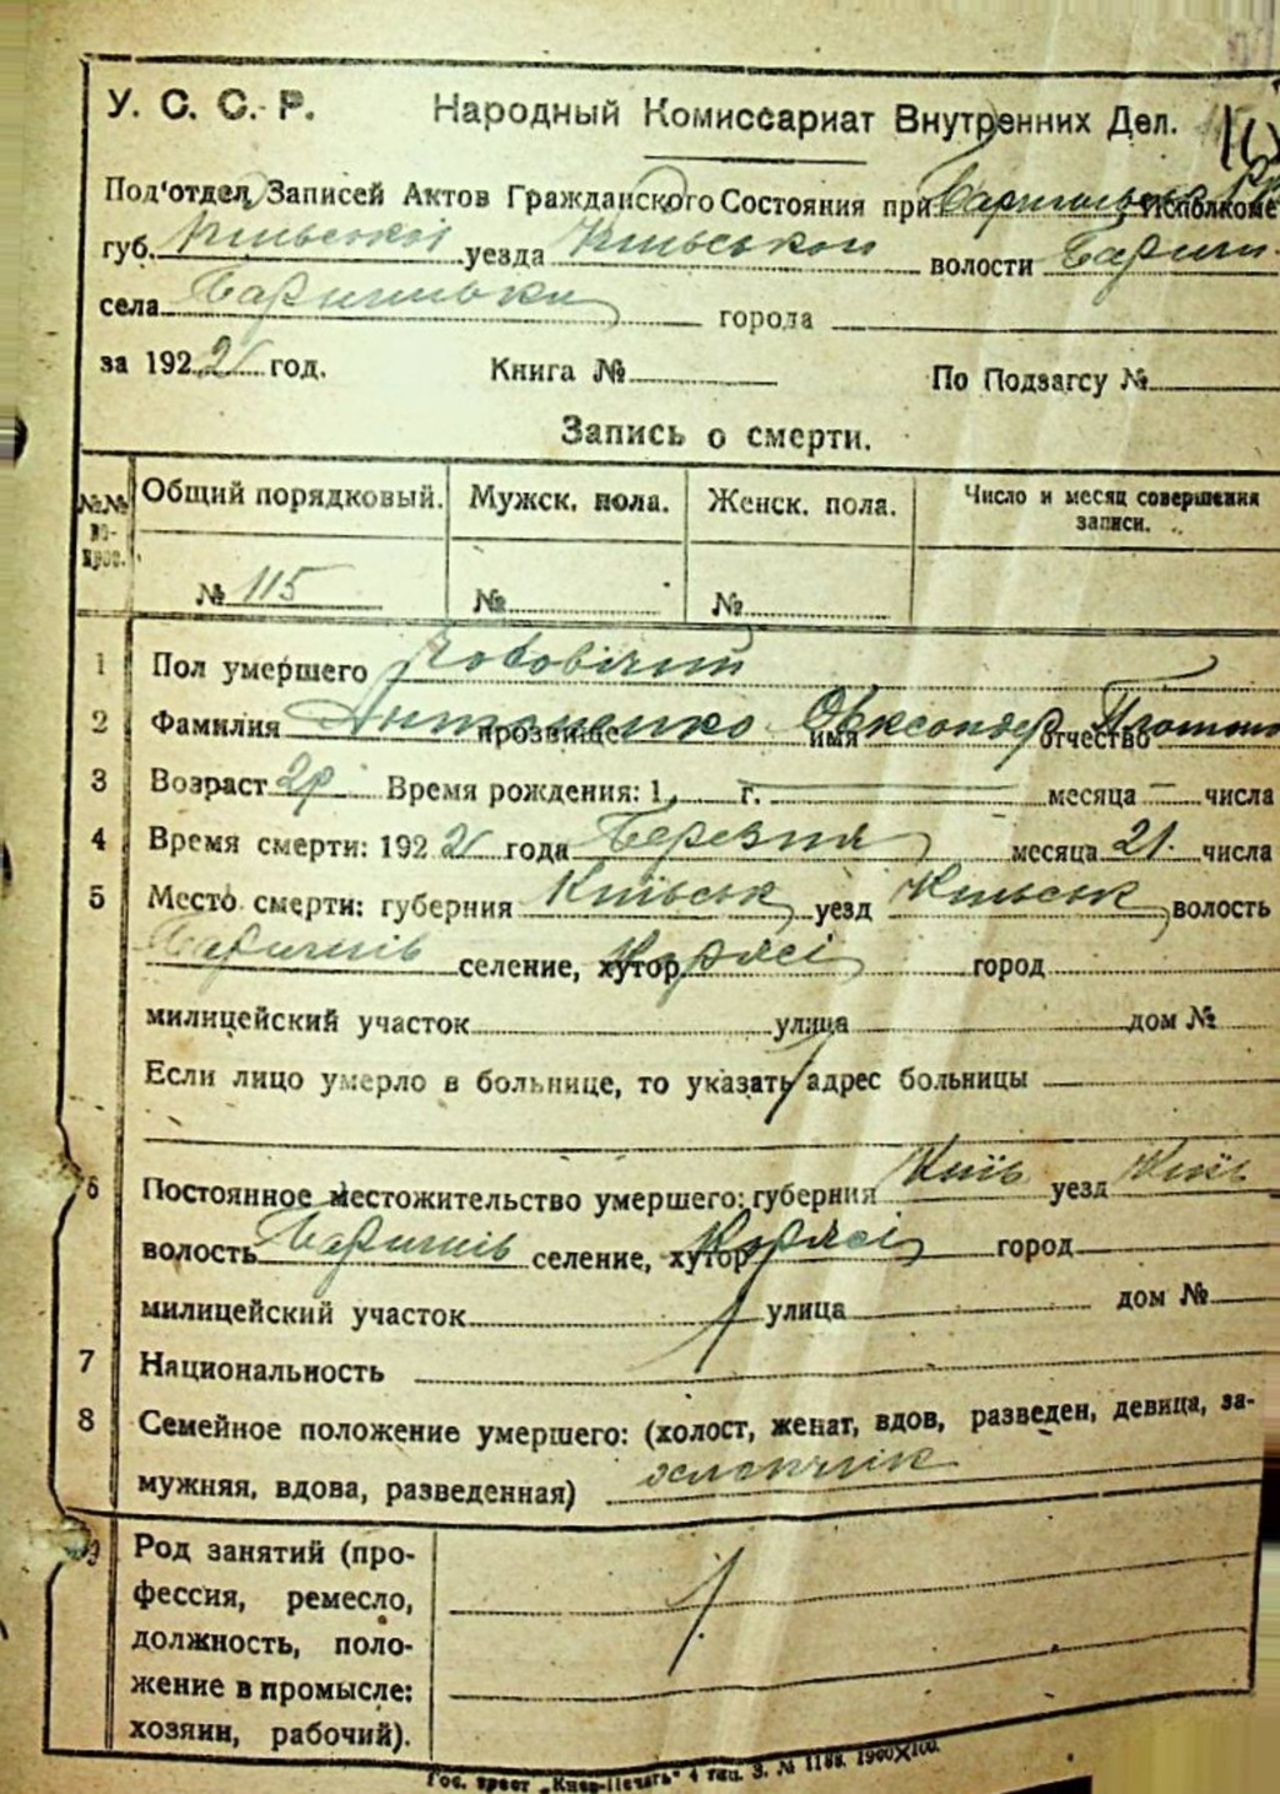 У. С. С. Р. Народный Комиссариат Внутренних Дел.
Под'отдел Записей Актов Гражданского Состояния при Исполкоме
губ. Київської уезда Київського волости Бариш.
села Баришівки города
за 1922 год. Книга № По Подзагсу №
Запись о смерти.
№№ Общий порядковый. Мужск. пола. Женск. пола. Число и месяц совершения
записи.
№ 115 № №
1 Пол умершего Чоловічий
2 Фамилия Антоненко Олександер
прозвище имя отчество
3 Возраст 2р Время рождения: 1 г. месяца — числа
4 Время смерти: 1922 года Березня месяца 21. числа
5 Место смерти: губерния Київськ уезд Київськ волость
Баришів селение, хутор Коржі город
милицейский участок улица дом №
Если лицо умерло в больнице, то указать адрес больницы
6 Постоянное местожительство умершего: губерния Київ уезд Київ
волость Баришів селение, хутор Коржі город
милицейский участок улица дом №
7 Национальность
8 Семейное положение умершего: (холост, женат, вдов, разведен, девица, за-
мужняя, вдова, разведенная) хлопчик
9 Род занятий (про-
фессия, ремесло,
должность, поло-
жение в промысле:
хозяин, рабочий).
Гос. трест „Киев-Печать" 4 тип. З. № 1188. 1900Х100.